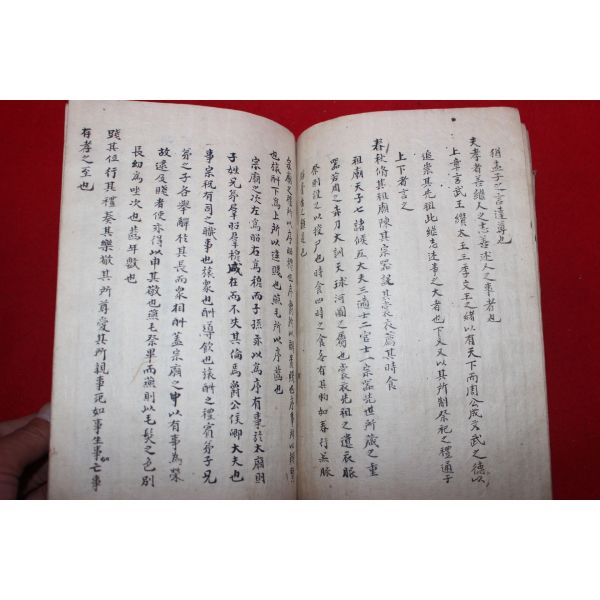 猶孟子之言達尊也
夫孝者善繼人之志善述人之事者也
上章言武王纘太王王季文王之緖以有天下而周公成文武之德以
追崇其先祖此繼志述事之大者也下文又以其所制祭祀之禮通于
上下者言之
春秋脩其祖廟陳其宗器設其裳衣薦其時食
祖廟天子七諸侯五大夫三適士二官士一宗器先世所藏之重
器若周之赤刀大訓天球河圖之屬也裳衣先祖之遺衣服
祭則設之以授尸也時食四時之食各有其物如春行
宗廟之禮所以序昭穆也序爵所以辨貴賤也序事所以辨賢
也旅酬下爲上所以逮賤也燕毛所以序齒也
宗廟之次左爲昭右爲穆而子孫亦以爲序有事於太廟則
子姓兄弟羣昭羣穆咸在而不失其倫焉爵公侯卿大夫也
事宗祝有司之職事也旅衆也酬導飮也旅酬之禮賓弟子兄
弟之子各擧觶於其長而衆相酬盖宗廟之中以有事爲榮
故逮及賤者使亦得以申其敬也燕毛祭畢而燕則以毛髮之色別
長幼爲坐次也齒年數也
踐其位行其禮奏其樂敬其所尊愛其所親事死如事生事亡如事
有孝之至也